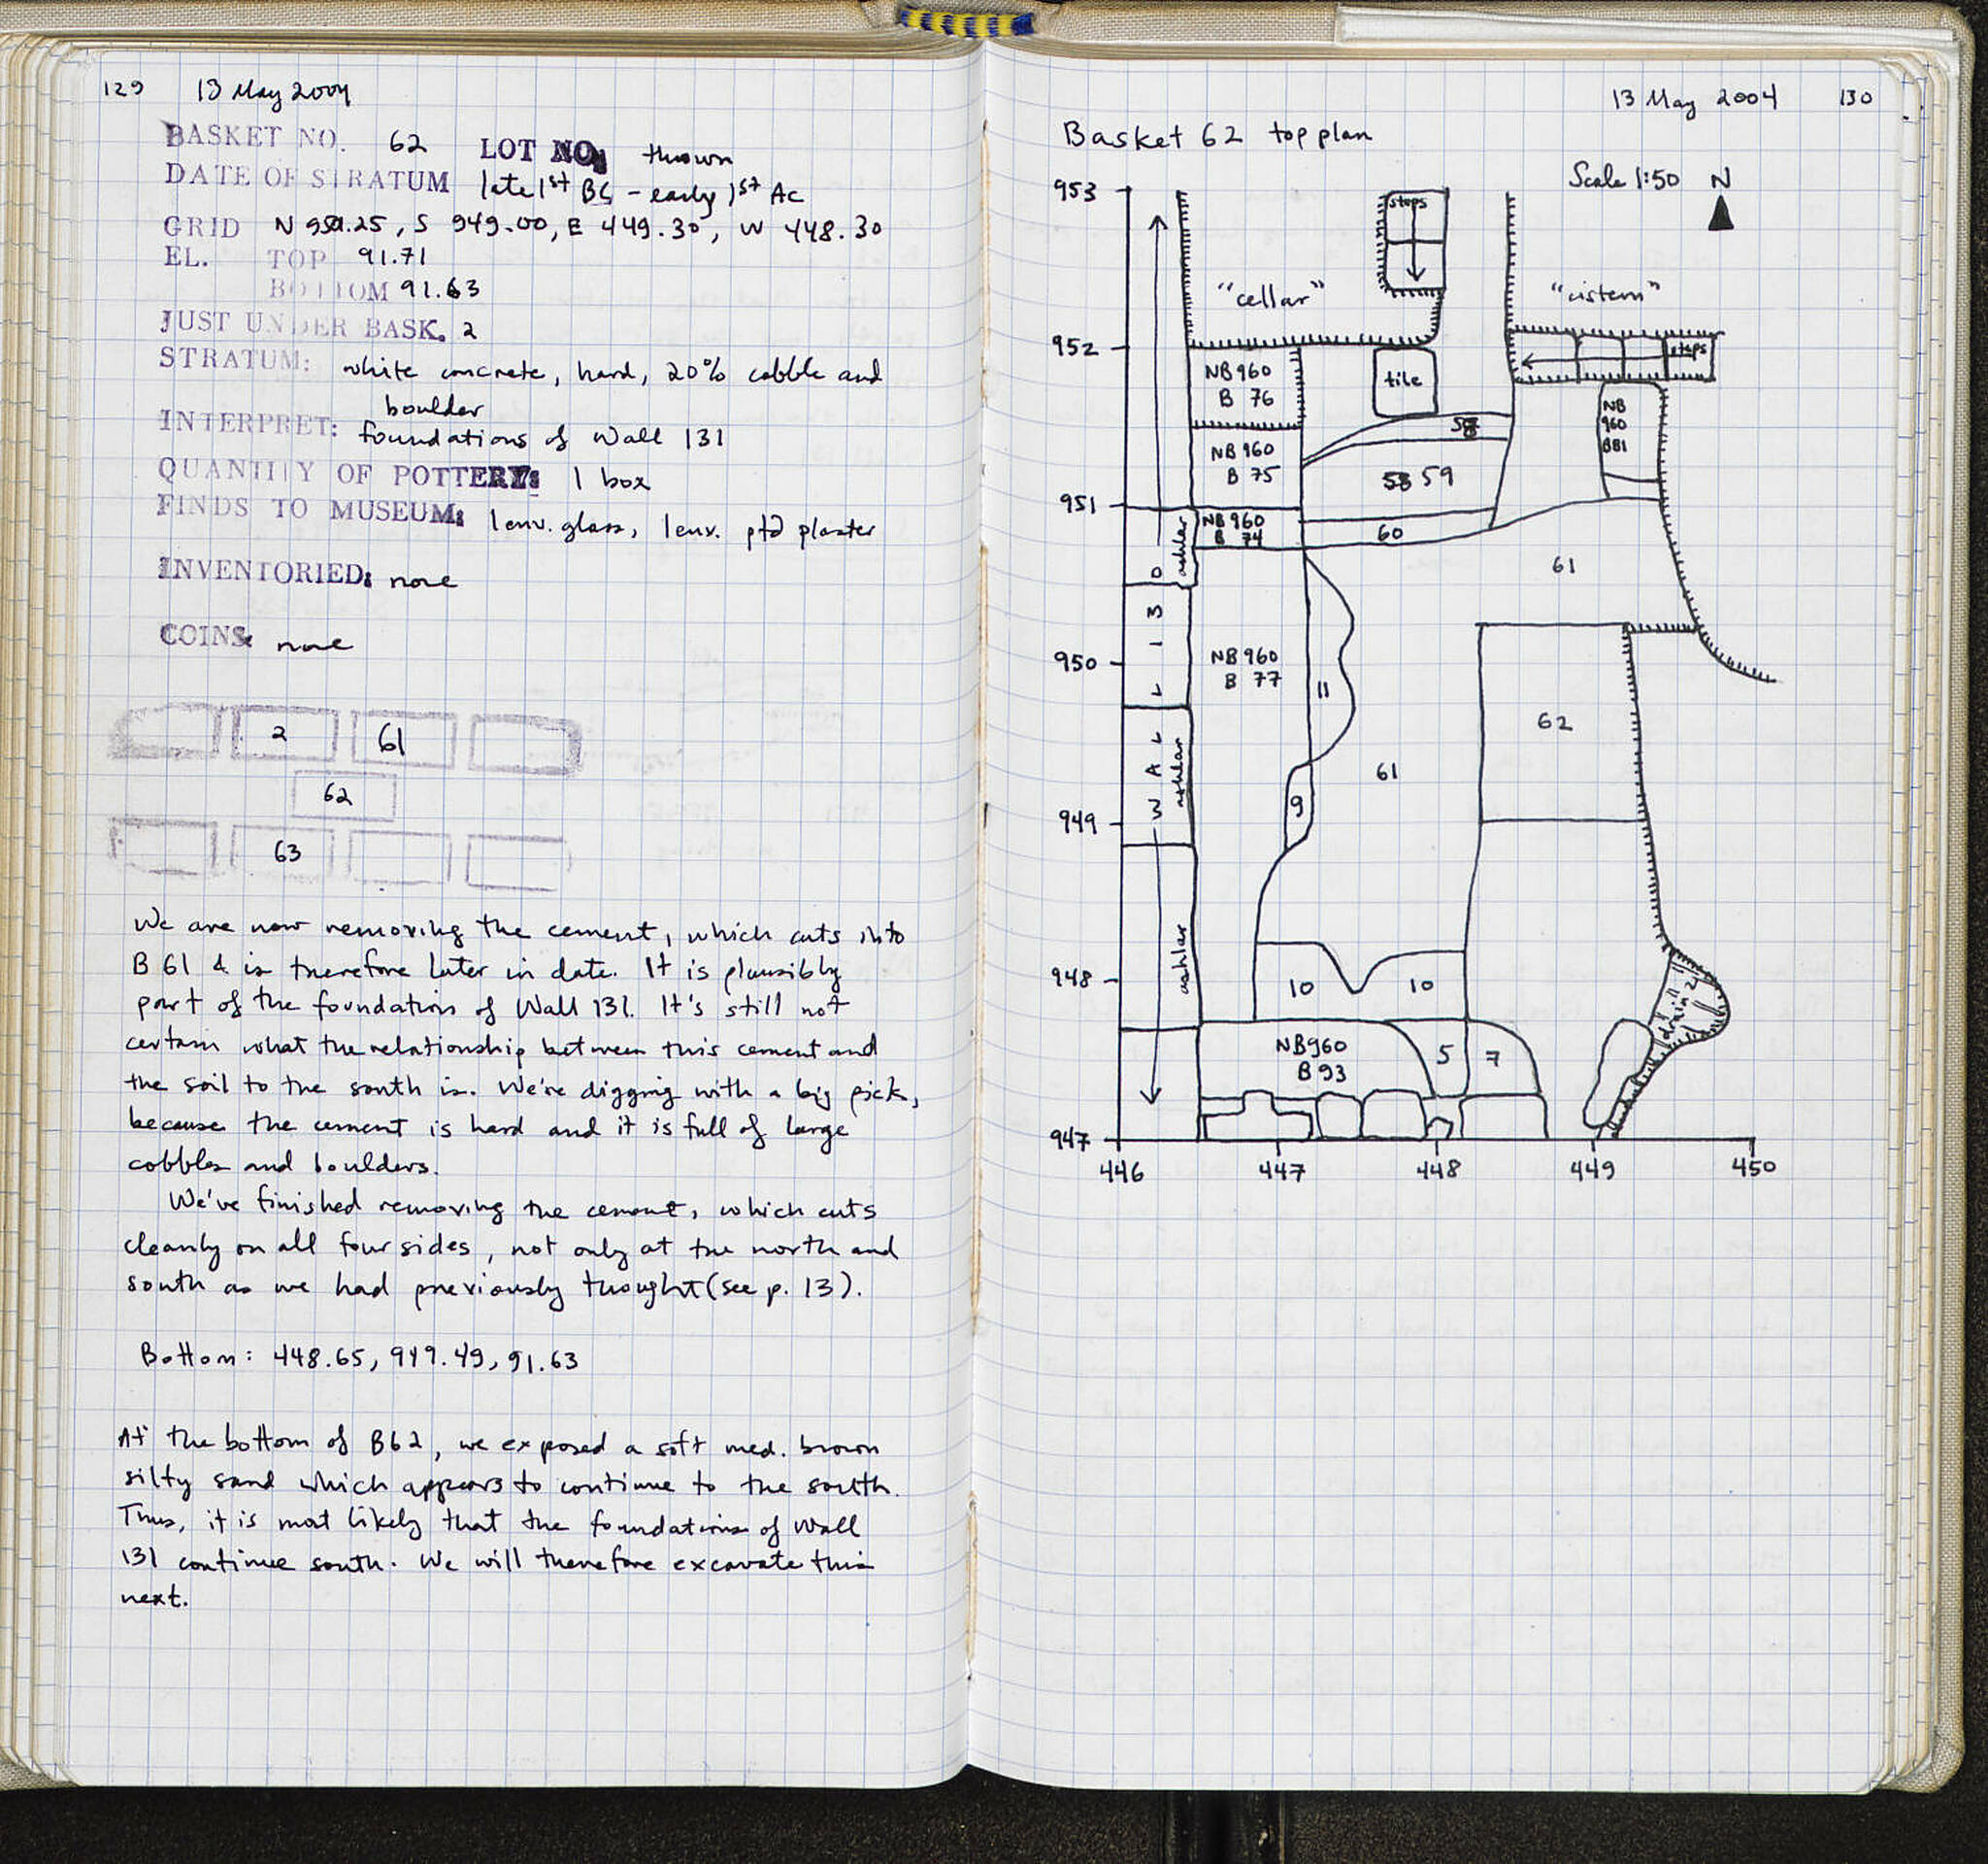 129 13 May 2004
BASKET NO. 62 LOT NO. thrown
DATE OF STRATUM late 1st BC - early 1st AC
GRID N 950.25, S 949.00, E 449.30, W 448.30
EL. TOP 91.71
BOTTOM 91.63
JUST UNDER BASK. 2
STRATUM: white concrete, hard, 20% cobble and
boulder
INTERPRET: foundations of Wall 131
QUANTITY OF POTTERY: 1 box
FINDS TO MUSEUM: 1 env. glass, 1 env. ptd plaster
INVENTORIED: none
COINS: none
2 61
62
63
We are now removing the cement, which cuts into
B 61 & is therefore later in date. It is plausibly
part of the foundation of Wall 131. It's still not
certain what the relationship between this cement and
the soil to the south is. We're digging with a big pick,
because the cement is hard and it is full of large
cobbles and boulders.
We've finished removing the cement, which cuts
cleanly on all four sides, not only at the north and
south as we had previously thought (see p. 13).
Bottom: 448.65, 949.49, 91.63
At the bottom of B62, we exposed a soft med. brown
silty sand which appears to continue to the south.
Thus, it is most likely that the foundations of Wall
131 continue south. We will therefore excavate this
next.
13 May 2004 130
Basket 62 top plan
Scale 1:50 N
953
steps
"cellar" "cistern"
952
steps
NB 960
B 76
tile
NB
960
B81
58
NB 960
B 75
59
951
NB 960
B 74
60
ashlar
61
WALL 130
950
NB 960
B 77
11
62
ashlar
61
9
949
ashlar
948
10 10
drain 2
NB960
B 93
5 7
947
446 447 448 449 450